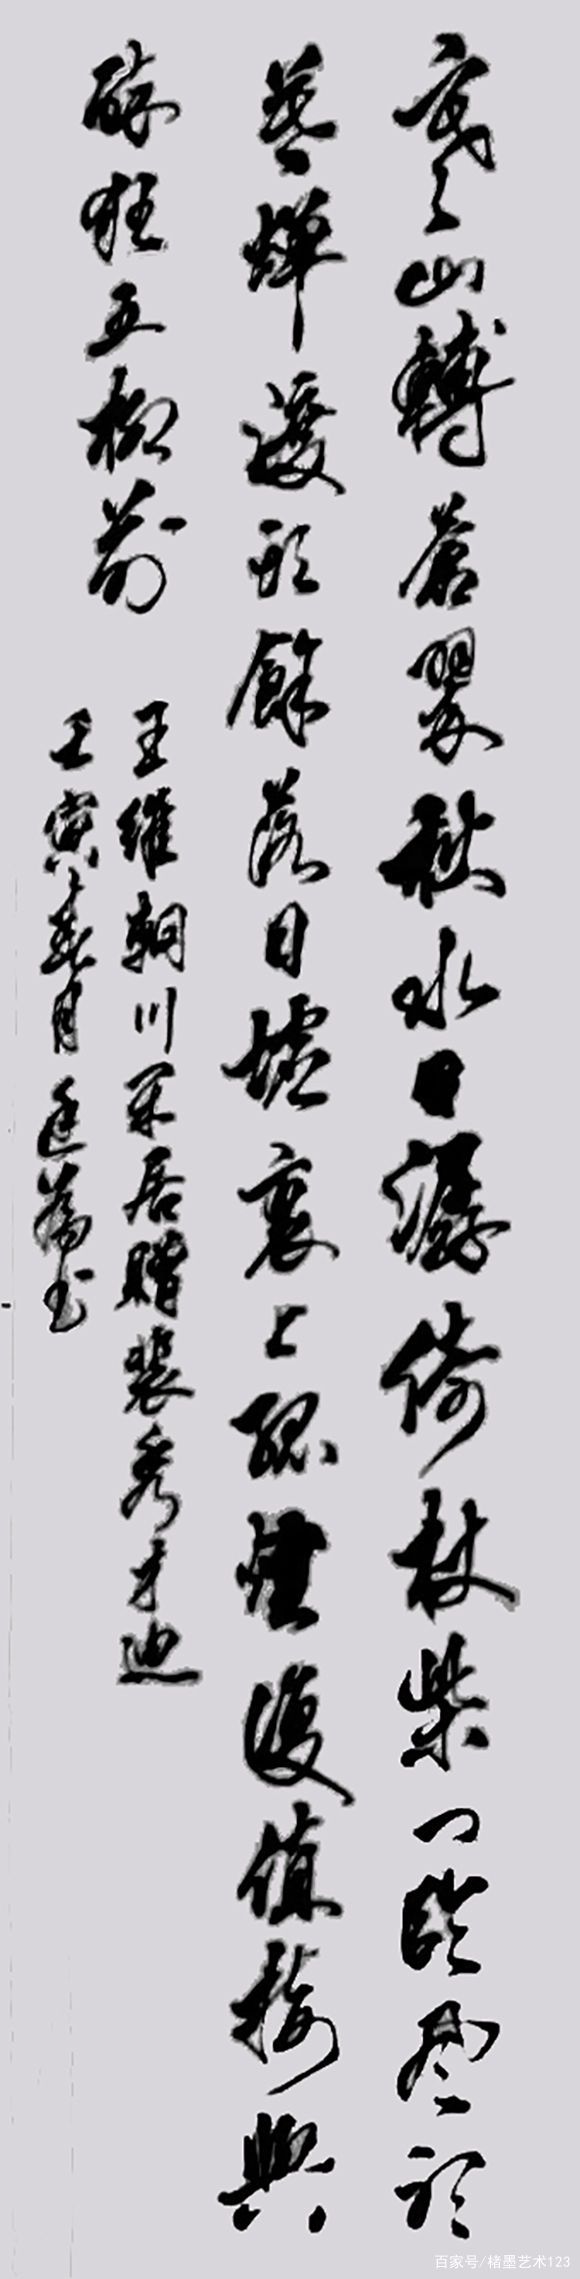 寒山轉蒼翠秋水日潺倚杖柴門臨風聽
暮蟬渡頭餘落日墟裏上孤煙復值接輿
醉狂五柳前
王維輞川閑居贈裴秀才迪
壬寅春月書
百家号/楮墨艺术123